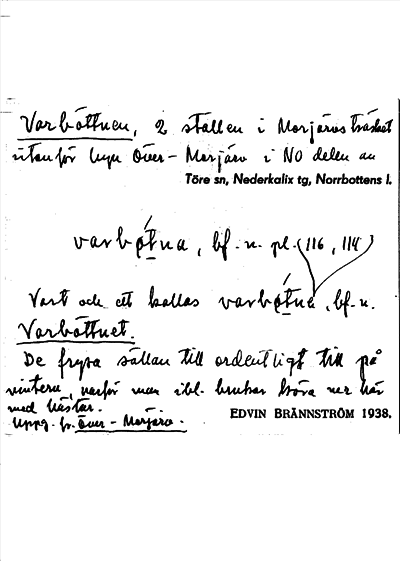 Varböttnen, 2 ställen i Morjärvsträsket
utanför byn Över-Morjärv i NO delen av
Töre sn, Nederkalix tg, Norrbottens l.
varbǿtna, bf. n. pl. (116, 114)
Vart och ett kallas varbǿtnä, bf. n.
Varböttnet.
De frysa sällan till ordentligt till på
vintern, varför man ibl. brukar köra ner här
med hästar.
Uppg. fr. Över-Morjärv.
EDVIN BRÄNNSTRÖM 1938.